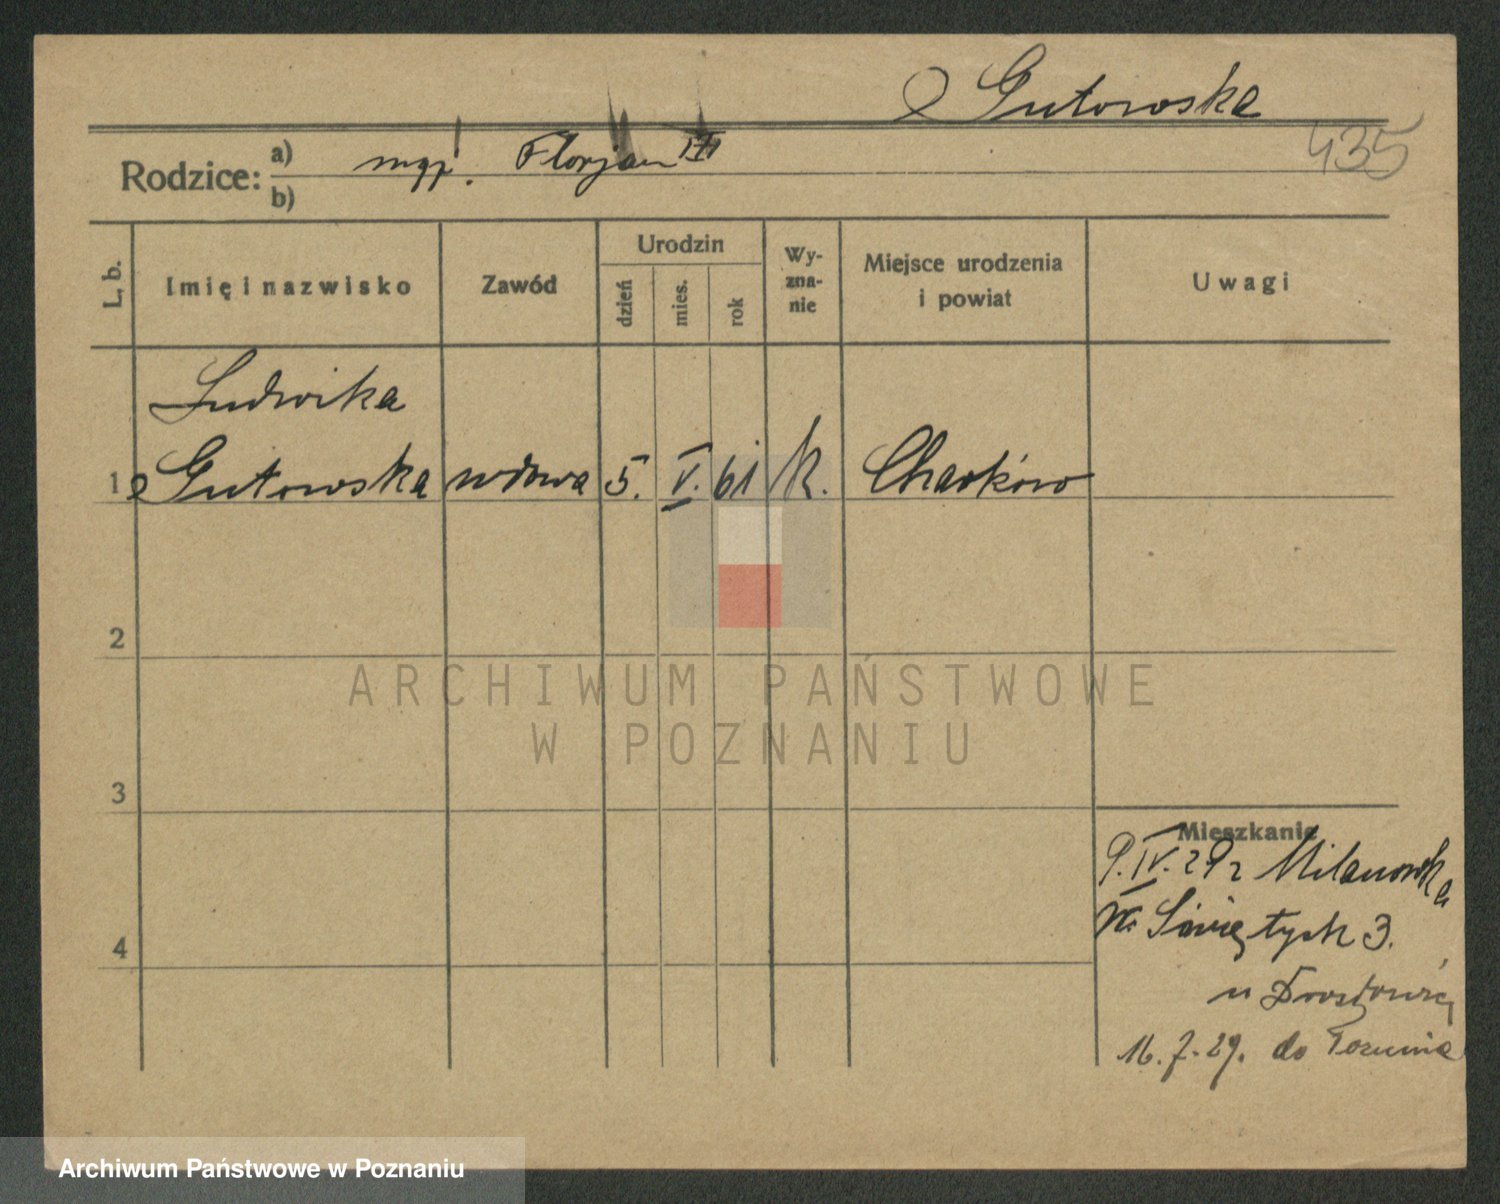 Gutowska
435
Rodzice: a) mąż. Florjan III
b)
L. b. Imię i nazwisko Zawód Urodzin dzień mies. rok Wy-zna-nie Miejsce urodzenia i powiat Uwagi
Ludwika
1 Gutowska wdowa 5. V. 61 k. Charków
2
3
Mieszkanie
9. IV. 29 z Milanowska
Św. Świętych 3.
4
16.7.29. do Torunia
ARCHIWUM PAŃSTWOWE
W POZNANIU
Archiwum Państwowe w Poznaniu